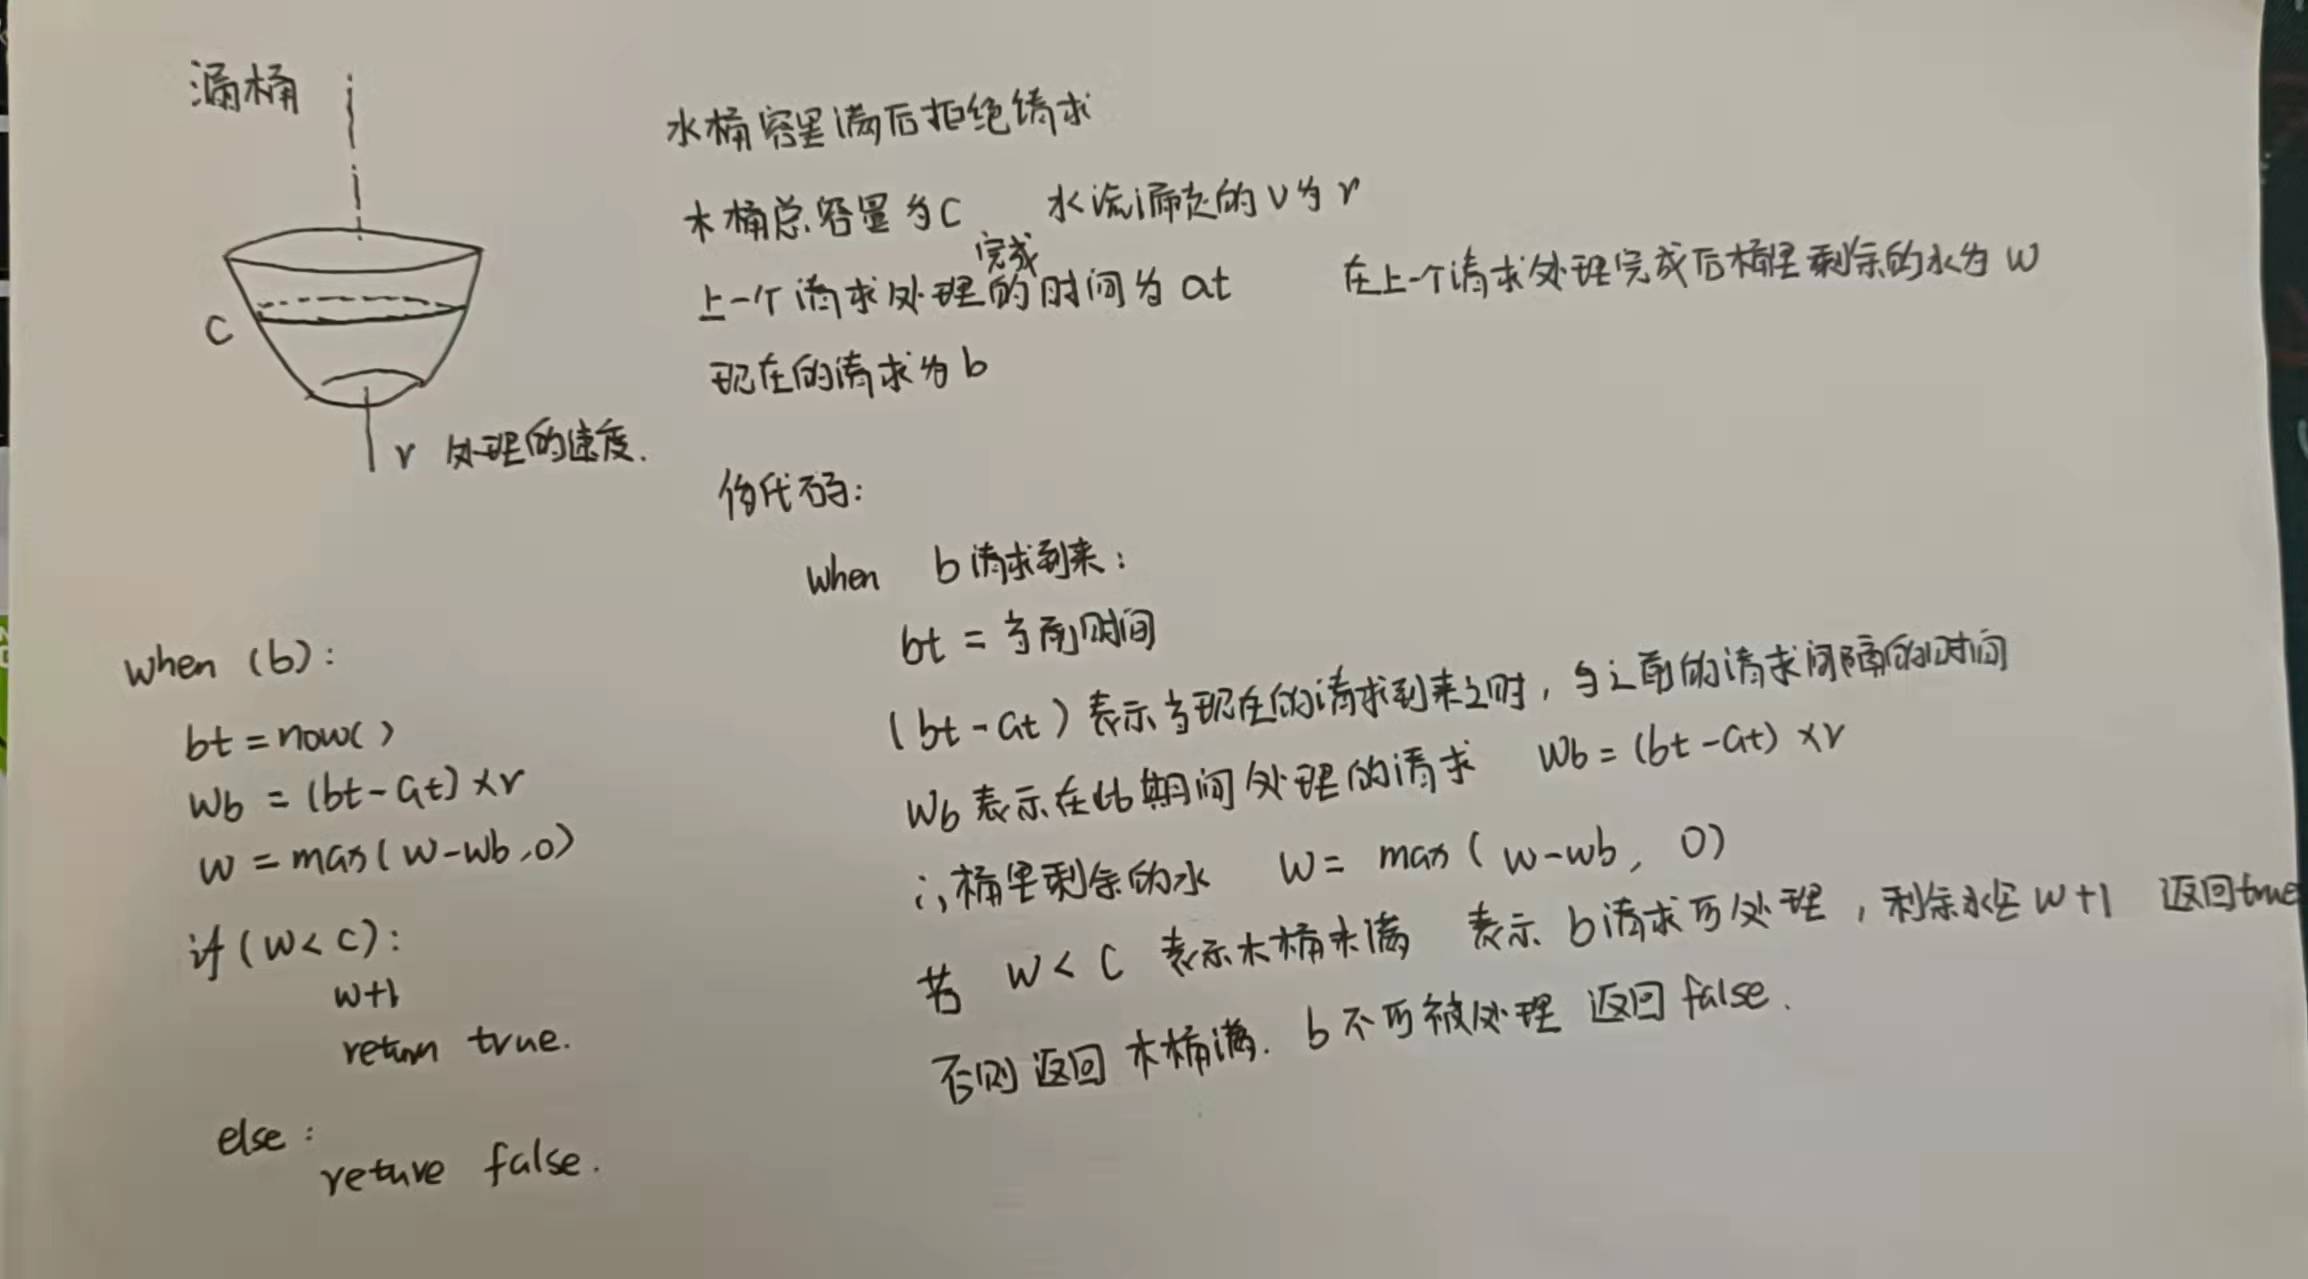 漏桶
水桶容量满后拒绝请求
木桶总容量为C 水流漏走的v为r
上一个请求处理完成的时间为at 在上一个请求处理完成后桶里剩余的水为w
现在的请求为b
C
r 处理的速度.
伪代码:
when b请求到来:
bt = 当前时间
(bt-at) 表示当现在的请求到来之时, 与之前的请求间隔的时间
Wb 表示在此期间处理的请求 Wb = (bt-at) ×r
∴桶里剩余的水 W = max ( w-wb, 0)
若 W< C 表示木桶未满 表示 b请求可处理, 剩余水位 w+1 返回true
否则 返回 木桶满. b不可被处理 返回 false.
when (b):
bt = now()
Wb = (bt-at) ×r
W = max( w-wb,0)
if (W< C):
w+1
return true.
else:
returve false.